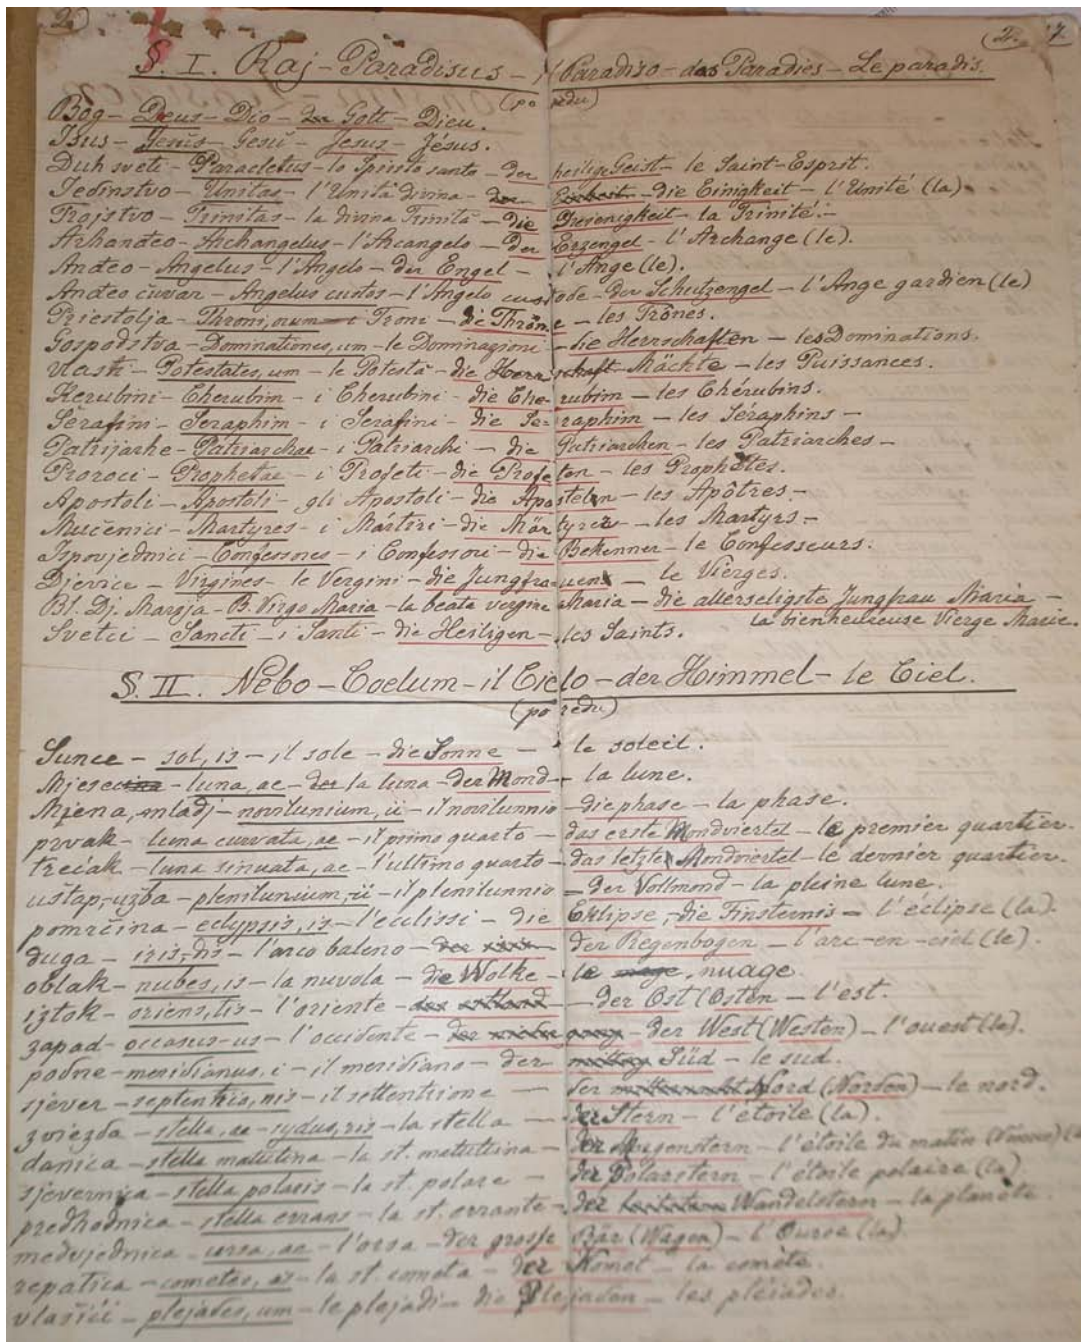 2. 2. 7
§. I. Raj - Paradisus - il Paradiso - das Paradies - Le paradis.
(po redu)
Bog - Deus - Dio - der Gott - Dieu.
Isus - Jesus - Gesù - Jesus - Jésus.
Duh sveti - Paracletus - lo Spirito santo - der heilige Geist - le Saint-Esprit.
Jedinstvo - Unitas - l'Unità divina - die Einigkeit - l'Unité (la)
Trojstvo - Trinitas - la divina Trinità - die Dreienigkeit - la Trinité. -
Arhanđeo - Archangelus - l'Arcangelo - der Erzengel - l'Archange (le).
Anđeo - Angelus - l'Angelo - der Engel - l'Ange (le).
Anđeo čuvar - Angelus custos - l'Angelo custode - der Schutzengel - l'Ange gardien (le)
Priestolja - Throni, orum - i Troni - die Throne - les Trônes.
Gospodstva - Dominationes, um - le Dominazioni - die Herrschaften - les Dominations.
Vlasti - Potestates, um - le Potestà - die Mächte - les Puissances.
Kerubini - Cherubim - i Cherubini - die Cherubim - les Chérubins.
Serafini - Seraphim - i Serafini - die Seraphim - les Séraphins -
Patrijarke - Patriarchae - i Patriarchi - die Patriarchen - les Patriarches -
Proroci - Prophetae - i Profeti - die Profeten - les Prophètes.
Apostoli - Apostoli - gli Apostoli - die Aposteln - les Apôtres. -
Mučenici - Martyres - i Mártiri - die Märtyrer - les Martyrs -
Ispovjednici - Confessores - i Confessori - die Bekenner - le Confesseurs.
Djevice - Virgines - le Vergini - die Jungfrauen - le Vierges.
Bl. Dj. Marija - B. Virgo Maria - la beata vergine Maria - die allerseligste Jungfrau Maria -
la bienheureuse Vierge Marie.
Svetci - Sancti - i Santi - die Heiligen - les Saints.
§. II. Nebo - Coelum - il Cielo - der Himmel - le Ciel.
(po redu)
Sunce - sol, is - il sole - die Sonne - le soleil.
Mjesec - luna, ae - la luna - der Mond - la lune.
Mjena, mladj - novilunium, ii - il novilunnio - die phase - la phase.
prvak - luna curvata, ae - il primo quarto - das erste Mondviertel - le premier quartier.
trećak - luna sinuata, ae - l'ultimo quarto - das letzte Mondviertel - le dernier quartier.
uštap, užba - plenilunium, ii - il plenilunnio - der Vollmond - la pleine lune.
pomrčina - eclypsis, is - l'ecclissi - die Eklipse, die Finsternis - l'éclipse (la).
duga - iris, - l'arco baleno - der Regenbogen - l'arc-en-ciel (le).
oblak - nubes, is - la nuvola - die Wolke - le nuage.
iztok - oriens, tis - l'oriente - der Ost (Osten - l'est.
zapad - occasus-us - l'occidente - der West (Westen) - l'ouest (le).
podne - meridianus, i - il meridiano - der Süd - le sud.
sjever - septentrio, nis - il settentrione - der Nord (Norden) - le nord.
zviezda - stella, ae - sydus, ris - la stella - der Stern - l'étoile (la).
danica - stella matutina - la st. matutina - der Morgenstern - l'étoile du matin (Venus)
sjevernica - stella polaris - la st. polare - der Polarstern - l'étoile polaire (la)
predhodnica - stella errans - la st. errante - der Wandelstern - la planète.
medvjednica - ursa, ae - l'orsa - der grosse Bär (Wagen) - l'Ourse (la)
repatica - cometes, ae - la st. cometa - der Komet - la comète.
vlašići - plejades, um - le plejadi - die Plejaden - les pléiades.